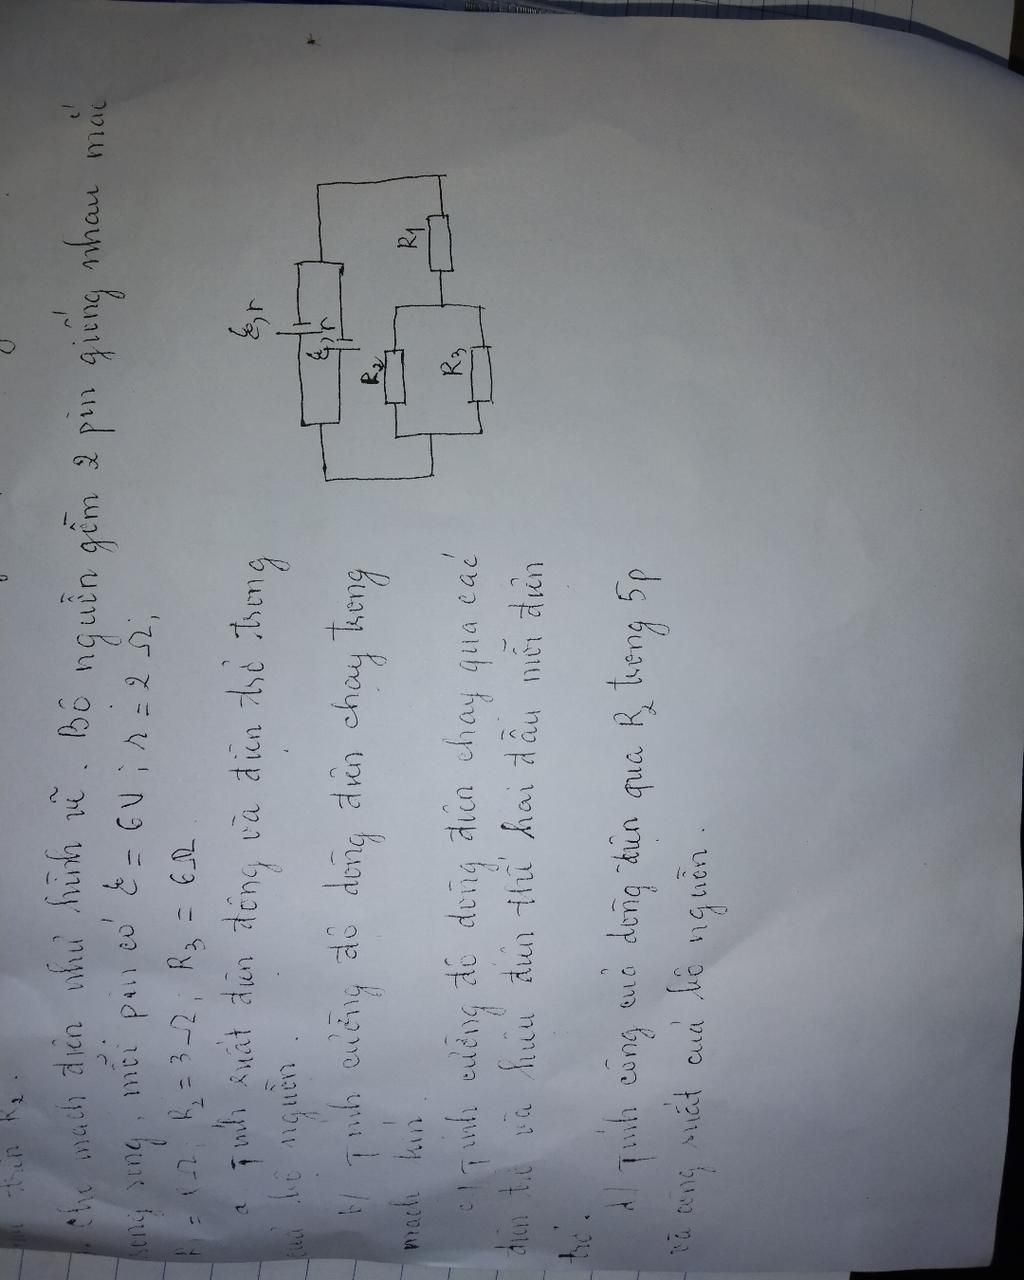 R₂.
Cho mạch điện như hình vẽ. Bộ nguồn gồm 2 pin giống nhau mắc
song song, mỗi pin có ξ = 6V ; r = 2 Ω;
R₂ = 3 Ω; R₃ = 6Ω
a Tính suất điện động và điện trở trong
của bộ nguồn.
b/ Tính cường độ dòng điện chạy trong
mạch kín.
c/ Tính cường độ dòng điện chạy qua các
điện trở và hiệu điện thế hai đầu mỗi điện
trở.
d/ Tính công của dòng điện qua R₂ trong 5p
và công suất của bộ nguồn.
ξ,r
ξ,r
R₂
R₁
R₃